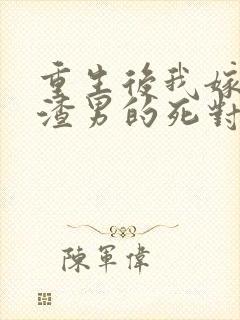 重生後我嫁
渣男的死對
陳軍偉